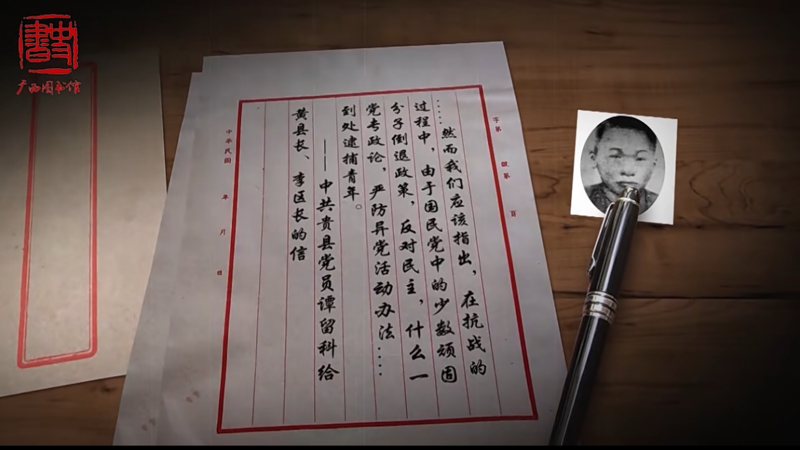 广西图书馆
字第 號第 頁
……然而我们应该指出，在抗战的
过程中，由于国民党中的少数顽固
分子倒退政策，反对民主，什么一
党专政论，严防异党活动办法……
到处逮捕青年。
——中共贵县党员谭留科给
黄县长、李区长的信
中華民國 年 月 日